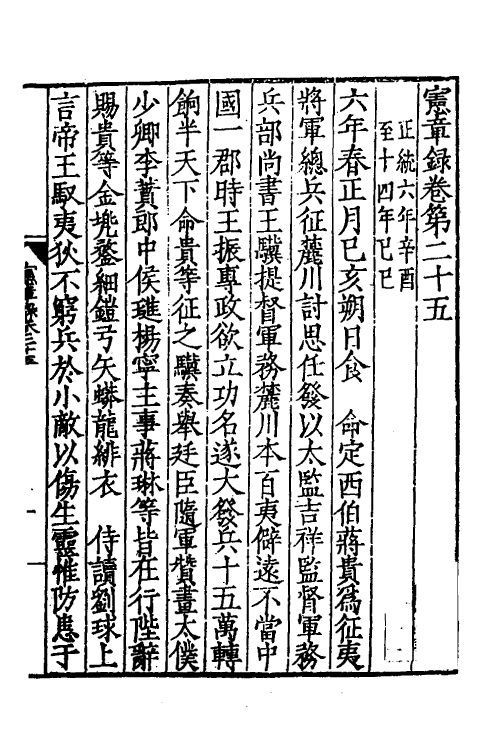 憲章錄卷第二十五
正統六年辛酉
至十四年己巳
六年春正月己亥朔日食　命定西伯蔣貴爲征夷
將軍總兵征麓川討思任發以太監吉祥監督軍務
兵部尚書王驥提督軍務麓川本百夷僻遠不當中
國一郡時王振專政欲立功名遂大發兵十五萬轉
餉半天下命貴等征之驥奏舉廷臣隨軍贊畫太僕
少卿李蕡郎中侯璡楊寧主事蔣琳等皆在行陛辭
賜貴等金兠鍪細鎧弓矢蟒龍緋衣　侍讀劉球上
言帝王馭夷狄不窮兵於小敵以傷生靈惟防患于